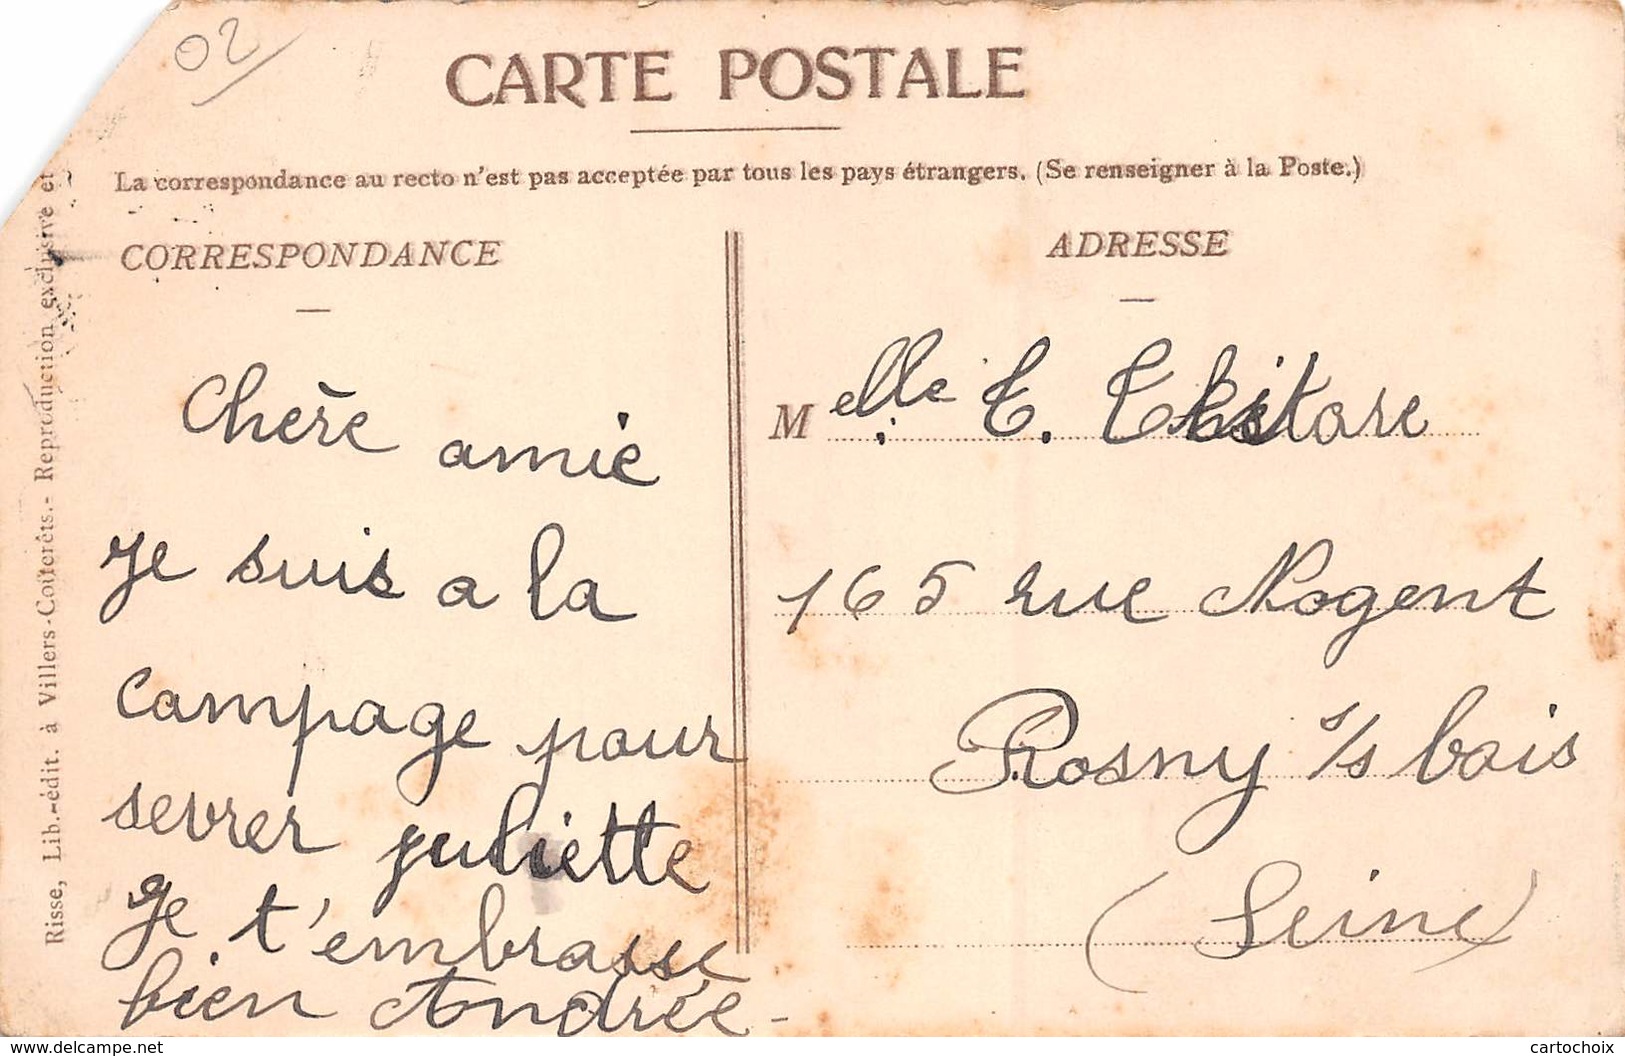 02
CARTE POSTALE
La correspondance au recto n'est pas acceptée par tous les pays étrangers. (Se renseigner à la Poste.)
Risse, Lib.-édit. à Villers-Coterêts.- Reproduction exclusive et
CORRESPONDANCE
Chère amie
Je suis a la
campage pour
sevrer juliette
Je t'embrasse
bien Andrée-
ADRESSE
Melle T.
165 rue Nogent
Rosny s/s bois
(Seine)
www.delcampe.net
cartochoix